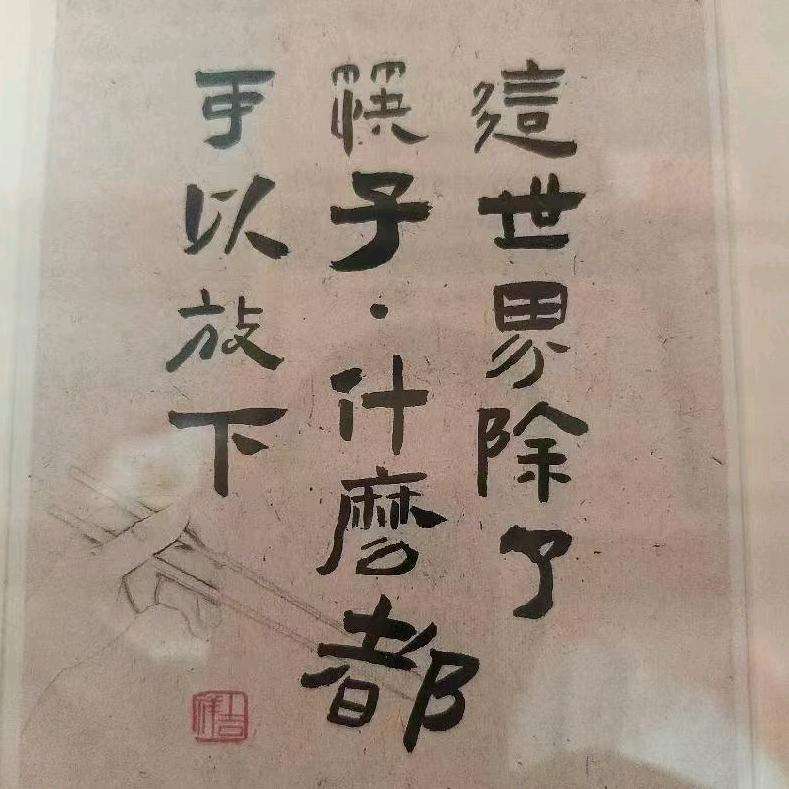 這世界除了
筷子·什麼都
可以放下
吉祥